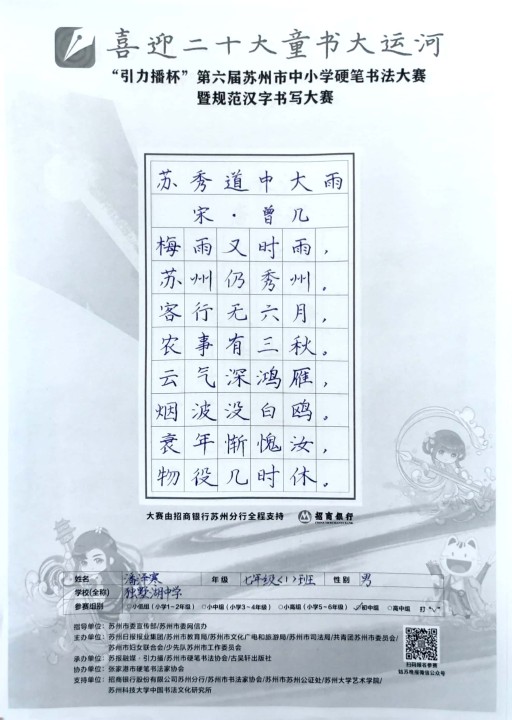 喜迎二十大童书大运河
“引力播杯”第六届苏州市中小学硬笔书法大赛
暨规范汉字书写大赛
苏秀道中大雨
宋·曾几
梅雨又时雨，
苏州仍秀州。
客行无六月，
农事有三秋。
云气深鸿雁，
烟波没白鸥。
衰年惭愧汝，
物役几时休。
大赛由招商银行苏州分行全程支持 招商银行
姓名 潘泽寒 年级 七年级(1)班 性别 男
学校(全称) 独墅湖中学
参赛组别 ○小低组（小学1~2年级） ○小中组（小学3~4年级） ○小高组（小学5~6年级） ○初中组 ○高中组 打“✓”
指导单位：苏州市委宣传部/苏州市委网信办
主办单位：苏州日报报业集团/苏州市教育局/苏州市文化广电和旅游局/苏州市司法局/共青团苏州市委员会/
苏州市妇女联合会/少先队苏州市工作委员会
承办单位：苏报融媒·引力播/苏州市硬笔书法家协会/古吴轩出版社
协办单位：张家港市硬笔书法家协会
支持单位：招商银行股份有限公司苏州分行/苏州市书法家协会/苏州市苏州公证处/苏州大学艺术学院/
苏州科技大学中国书法文化研究所
扫码报名参赛
姑苏晚报微信公众号